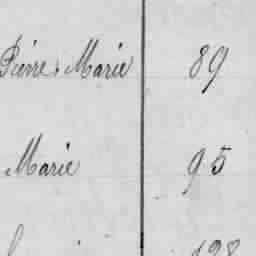 Pierre Marie 89
Marie 95
128